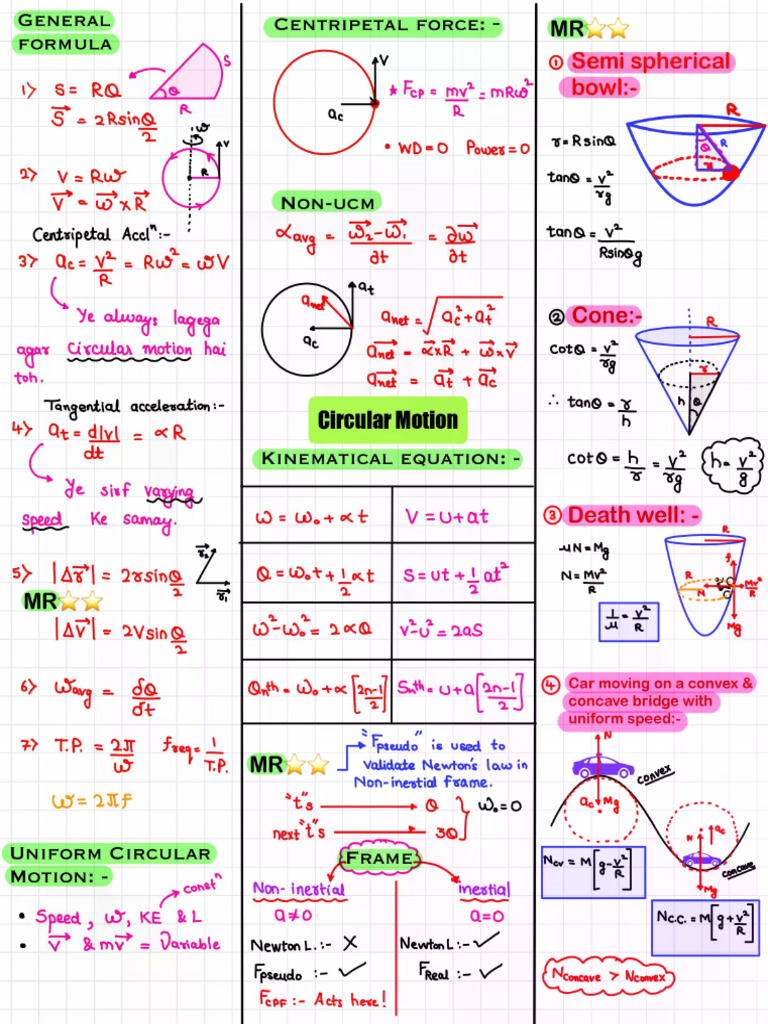 GENERAL
FORMULA
1> S = RQ
S⃗ = 2RsinQ/2
S
Q
R
ω
V
R
2> V = Rω
V⃗ = ω⃗ × R⃗
Centripetal Acclⁿ:-
3> ac = V²/R = Rω² = ωV
Ye always lagega
agar Circular motion hai
toh.
Tangential acceleration:-
4> at = d|v|/dt = αR
Ye sirf varying
speed Ke samay.
5> |Δr⃗| = 2rsinQ/2
r⃗₂
r⃗₁
MR⭐⭐
|Δv⃗| = 2VsinQ/2
6> ωavg = δQ/δt
7> T.P. = 2π/ω freq = 1/T.P.
ω = 2πf
UNIFORM CIRCULAR
MOTION: -
constⁿ
• Speed, ω, KE & L
• V⃗ & mv⃗ = Variable
CENTRIPETAL FORCE: -
V
ac
* FCP = mv²/R = mRω²
• WD=0 Power=0
NON-UCM
αavg = ω⃗₂-ω⃗₁/∂t = ∂ω⃗/∂t
at
anet
ac
anet = √ac²+at²
a⃗net = α⃗×R⃗ + ω⃗×v⃗
a⃗net = a⃗t + a⃗c
Circular Motion
KINEMATICAL EQUATION: -
ω = ω₀ + αt V = u + at
Q = ω₀t + 1/2 αt S = ut + 1/2 at²
ω²-ω₀² = 2αQ v²-u² = 2aS
Qnth = ω₀ + α[2n-1/2] Snth = u + a[2n-1/2]
MR⭐⭐
"Fpseudo" is used to
validate Newton's law in
Non-inertial frame.
"t"s → Q
ω₀=0
next "t"s → 3Q
FRAME
Non-inertial inertial
a≠0 a=0
Newton L.:- ✗ Newton L:- ✓
Fpseudo :- ✓ FReal :- ✓
FCPF :- Acts here!
MR⭐⭐
① Semi spherical
bowl:-
r = RsinQ
tanQ = v²/rg
tanQ = v²/RsinQg
R
Q
R
r
② Cone:-
cotQ = v²/rg
∴ tanQ = r/h
cotQ = h/r = v²/rg
h = v²/g
R
r
h
Q
③ Death well: -
μN = Mg
N = Mv²/R
1/μ = v²/R
R
R
f
N
Mv²/R
Mg
④ Car moving on a convex &
concave bridge with
uniform speed:-
N
convex
ac
Mg
N
ac
concave
Mg
Ncv = M[g-v²/R]
NC.C. = M[g+v²/R]
Nconcave > Nconvex